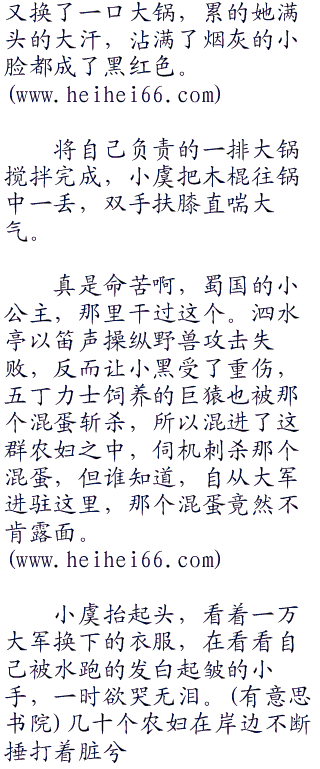 又换了一口大锅，累的她满
头的大汗，沾满了烟灰的小
脸都成了黑红色。
(www.heihei66.com)
将自己负责的一排大锅
搅拌完成，小虞把木棍往锅
中一丢，双手扶膝直喘大
气。
真是命苦啊，蜀国的小
公主，那里干过这个。泗水
亭以笛声操纵野兽攻击失
败，反而让小黑受了重伤，
五丁力士饲养的巨猿也被那
个混蛋斩杀，所以混进了这
群农妇之中，伺机刺杀那个
混蛋，但谁知道，自从大军
进驻这里，那个混蛋竟然不
肯露面。
(www.heihei66.com)
小虞抬起头，看着一万
大军换下的衣服，在看看自
己被水跑的发白起皱的小
手，一时欲哭无泪。(有意思
书院)几十个农妇在岸边不断
捶打着脏兮